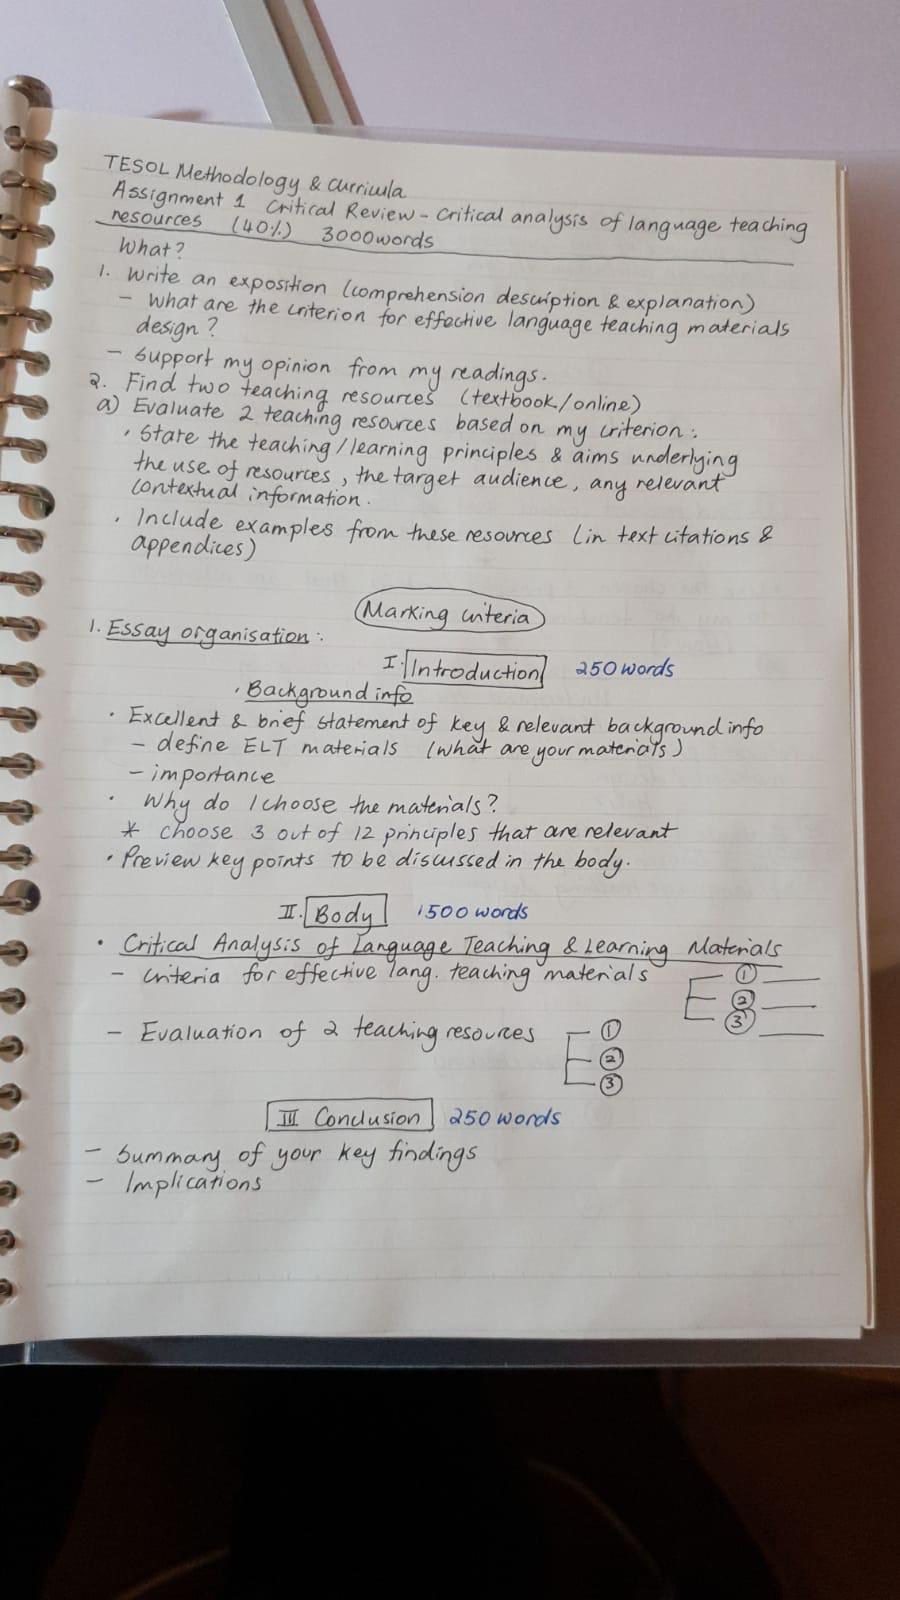 TESOL Methodology & Curricula
Assignment 1 Critical Review - Critical analysis of language teaching
resources (40%) 3000 words
What?
1. Write an exposition (comprehension description & explanation)
- What are the criterion for effective language teaching materials
design?
- Support my opinion from my readings.
2. Find two teaching resources (textbook/online)
a) Evaluate 2 teaching resources based on my criterion:
• State the teaching/learning principles & aims underlying
the use of resources, the target audience, any relevant
contextual information.
• Include examples from these resources (in text citations &
appendices)
Marking criteria
1. Essay organisation:
I. Introduction 250 words
• Background info
• Excellent & brief statement of key & relevant background info
- define ELT materials (what are your materials)
- importance
• Why do I choose the materials?
* choose 3 out of 12 principles that are relevant
• Preview key points to be discussed in the body.
II. Body 1500 words
• Critical Analysis of Language Teaching & Learning Materials
- criteria for effective lang. teaching materials ① ② ③
- Evaluation of 2 teaching resources ① ② ③
III Conclusion 250 words
- Summary of your key findings
- Implications